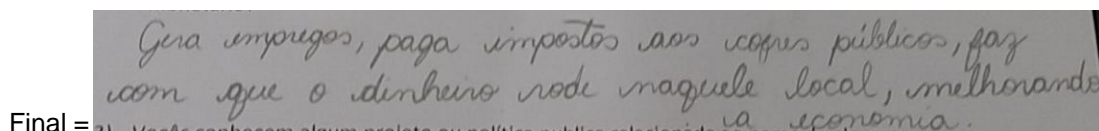 Gera empregos, paga impostos aos cofres públicos, faz
com que o dinheiro rode naquele local, melhorando
a economia.
Final =